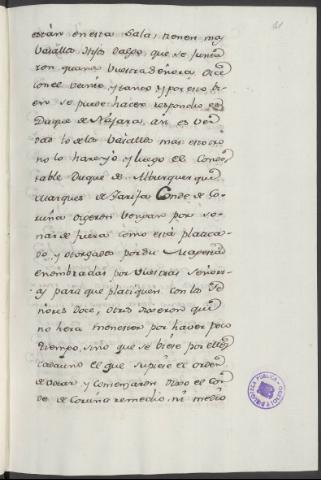 están en esta Sala, tienen mas
Vasallos, Hijos dalgo, que se junta
ron quando Vuestra Señoria dice
con el Veinte, y tantos, y por eso bi
en se puede hacer respondio el
Duque de Náxara, asi es ver
dad lo de los Vasallos mas eso otro
no lo hare yo, y luego el Condes
table Duque de Alburquerque
Marques de Tarifa Conde de Co
ruña dixeron vengan per so
nas de fuera como está platica
do, y otorgado por su Magestad
enombradas por Vuestras Señori
as para que platiquen con los Se
ñores doce, otros dixeron que
no hera menester por haver poco
tiempo, sino que se viese por ellos
cada uno el que supiese el orden
de votar, y comenzaron dixo el Con
de de Coruña remedio, ni medio
BIBLIOTECA PUBLICA
TOLEDO